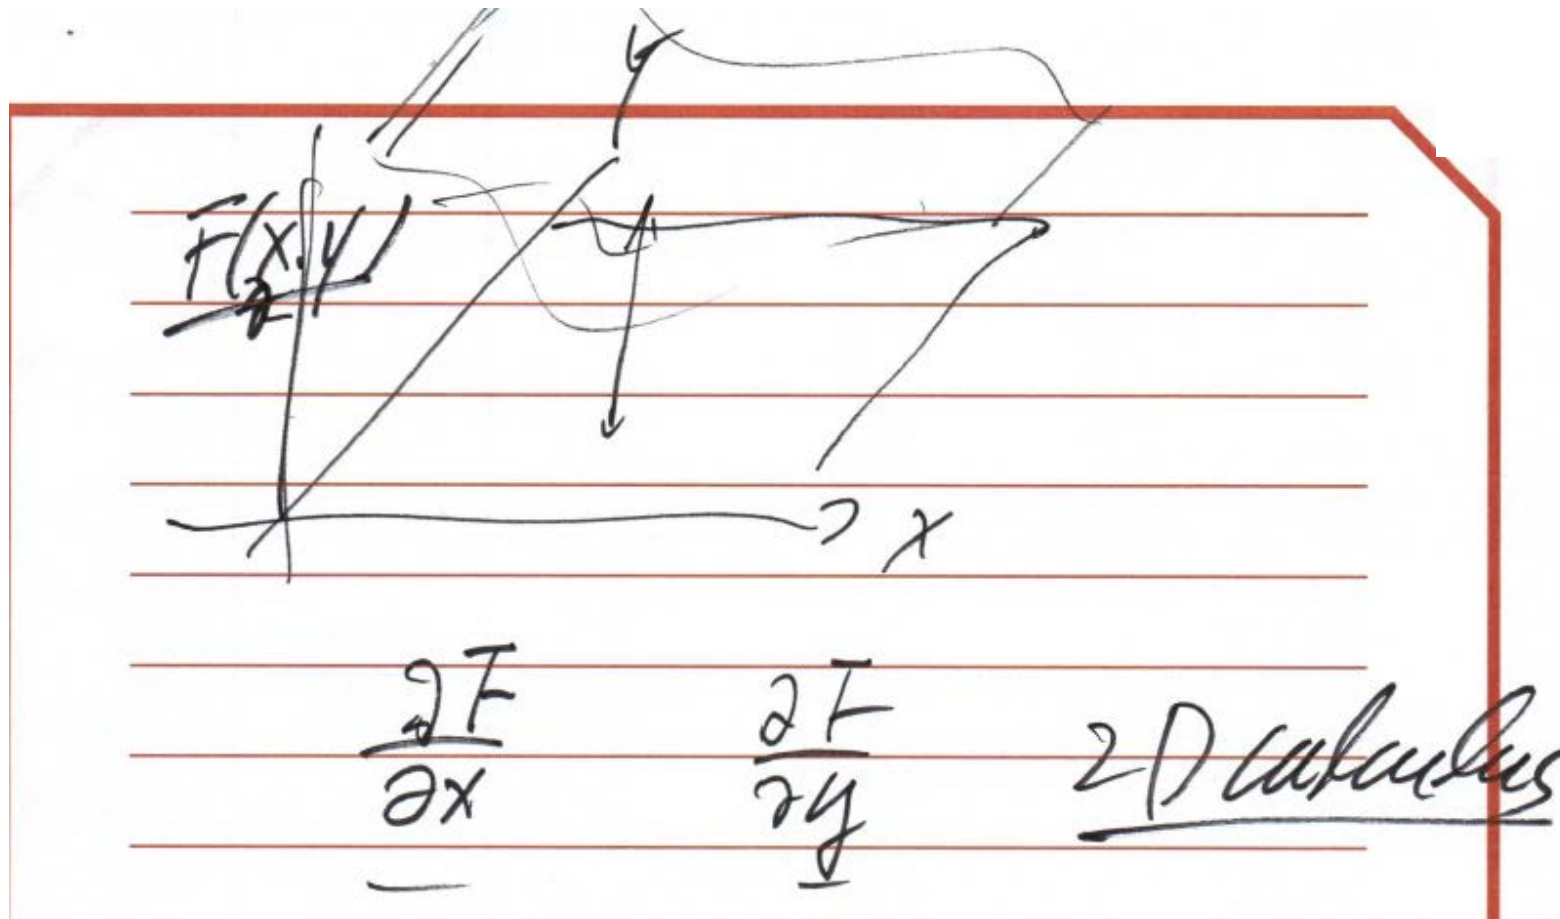 y
F(x,y)
z
x
∂F/∂x ∂F/∂y 2D calculus